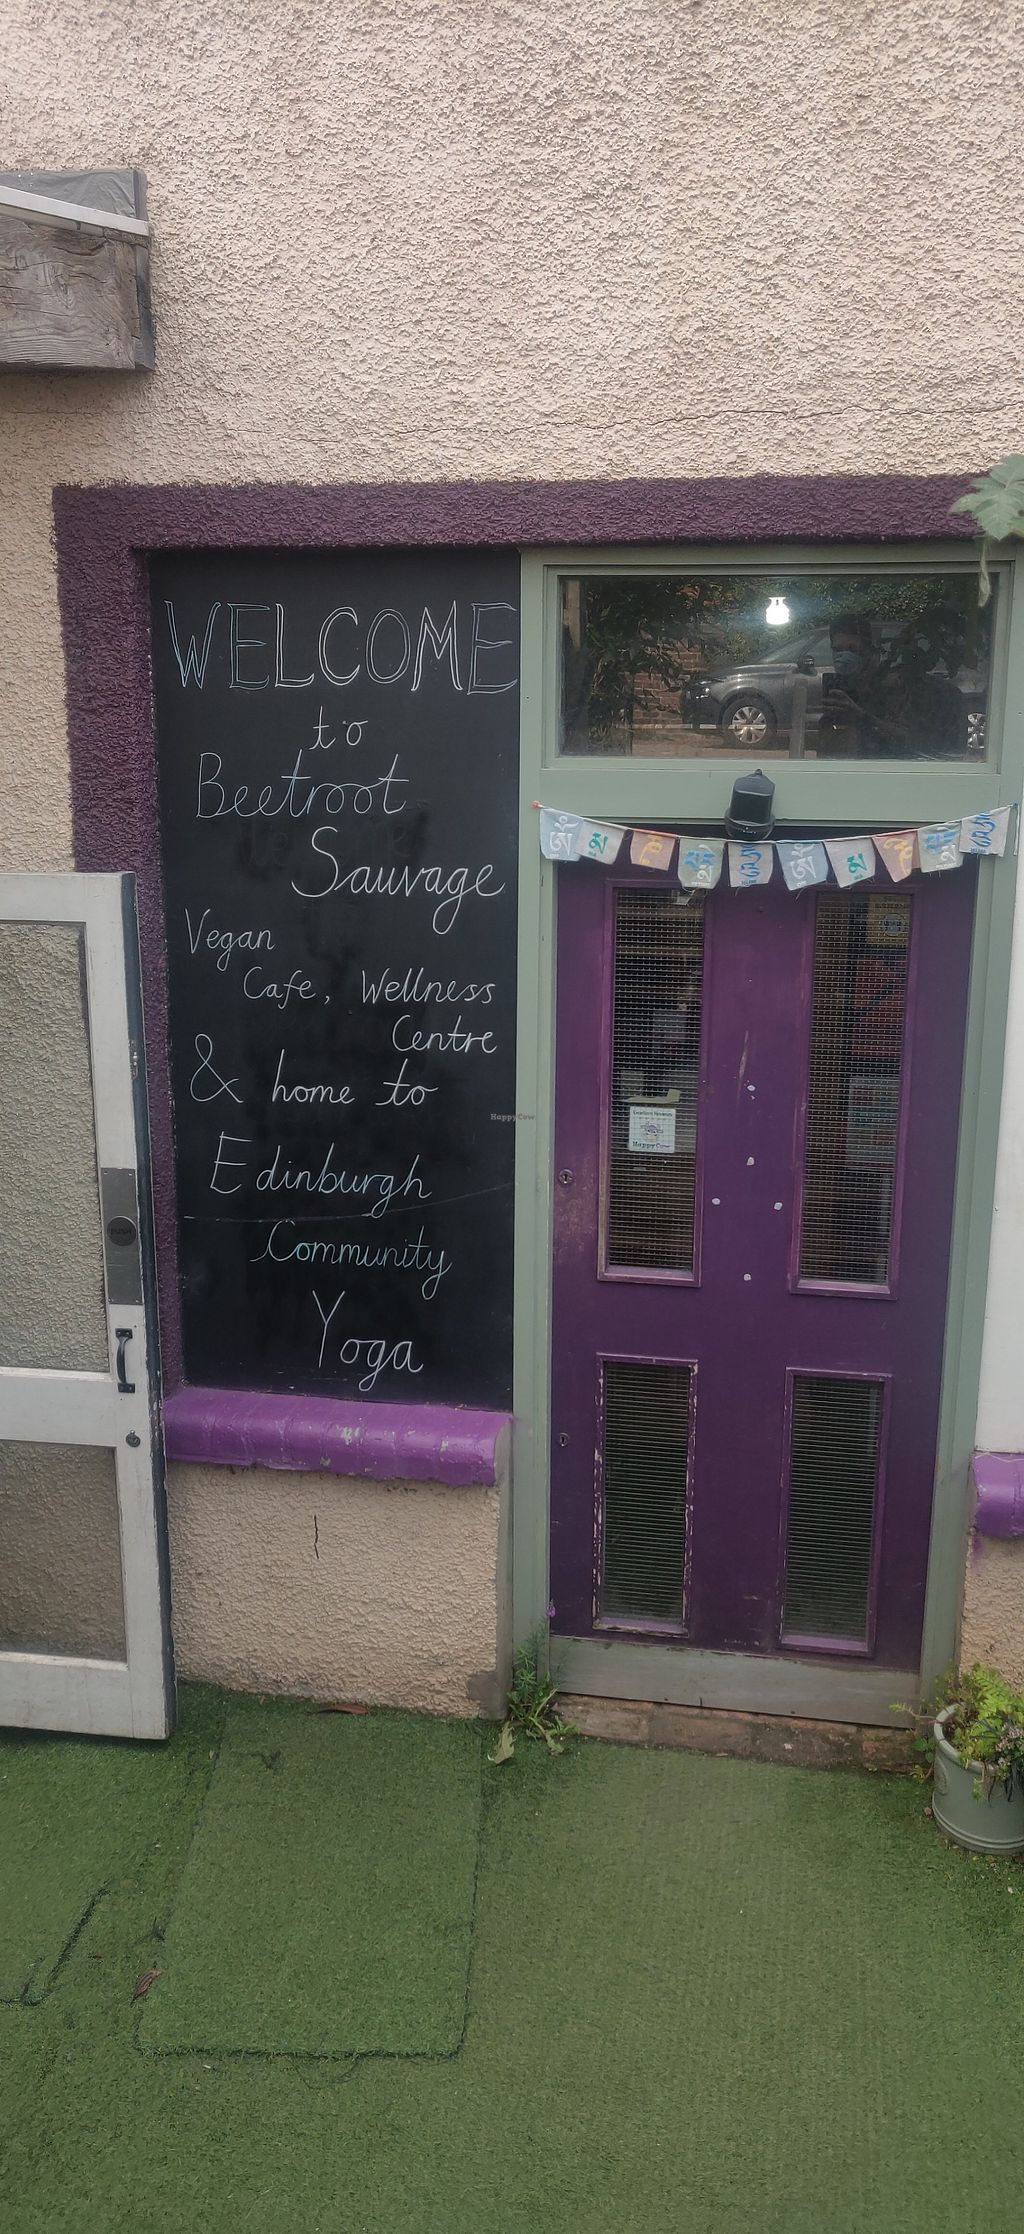 WELCOME
to
Beetroot
Sauvage
Vegan
Cafe, Wellness
Centre
& home to
Edinburgh
Community
Yoga
HappyCow
HappyCow
PUSH